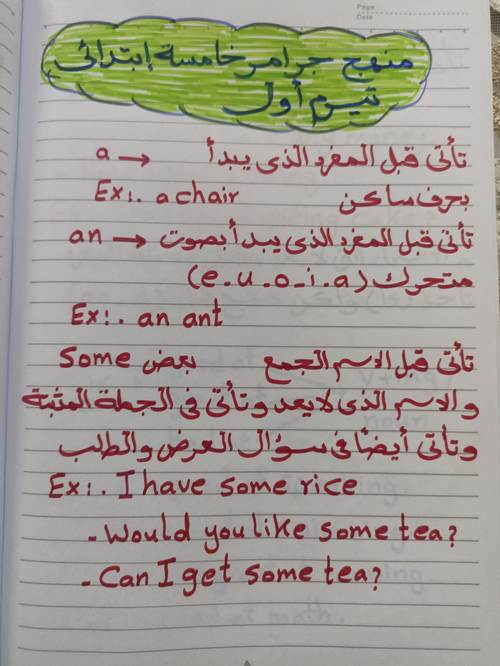 Page
Date
منهج جرامر خامسة إبتدائي
تيرم أول
a → تأتى قبل المفرد الذى يبدأ
بحرف ساكن Ex:. a chair
an → تأتى قبل المفرد الذى يبدأ بصوت
متحرك (e.u.o.i.a)
Ex:. an ant
some بعض تأتى قبل الاسم الجمع
والاسم الذى لا يعد وتأتى فى الجملة المثبتة
وتأتى أيضًا فى سؤال العرض والطلب
Ex:. I have some rice
- Would you like some tea?
- Can I get some tea?